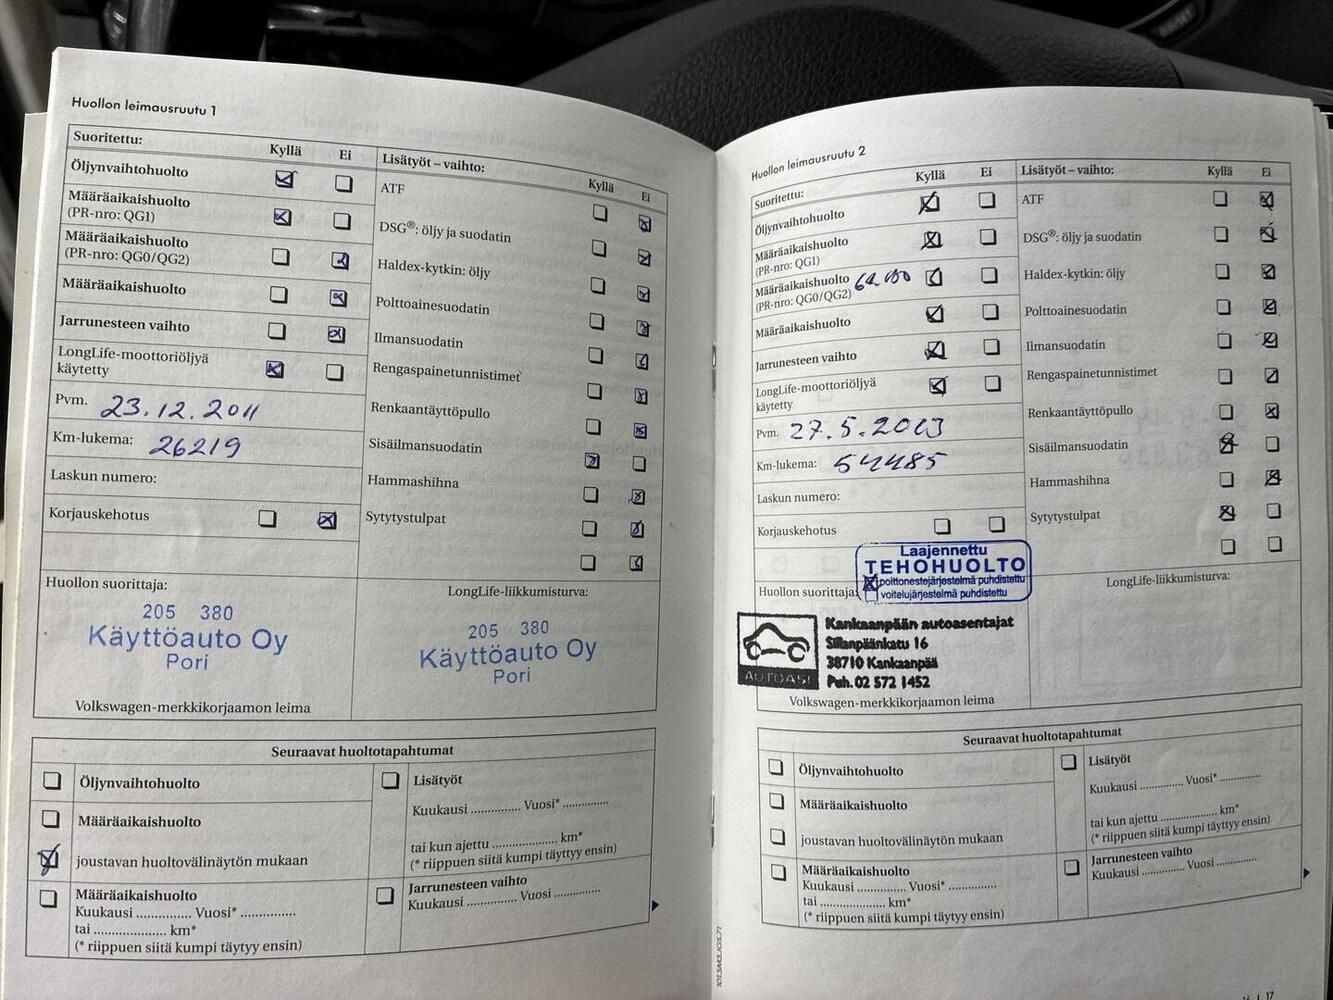 Huollon leimausruutu 1
Suoritettu:
Kyllä
Ei
Öljynvaihtohuolto
Määräaikaishuolto
(PR-nro: QG1)
Määräaikaishuolto
(PR-nro: QG0/QG2)
Määräaikaishuolto
Jarrunesteen vaihto
LongLife-moottoriöljyä
käytetty
Pvm. 23.12.2011
Km-lukema: 26219
Laskun numero:
Korjauskehotus
Lisätyöt – vaihto:
Kyllä
Ei
ATF
DSG®: öljy ja suodatin
Haldex-kytkin: öljy
Polttoainesuodatin
Ilmansuodatin
Rengaspainetunnistimet
Renkaantäyttöpullo
Sisäilmansuodatin
Hammashihna
Sytytystulpat
Huollon suorittaja:
205 380
Käyttöauto Oy
Pori
Volkswagen-merkkikorjaamon leima
LongLife-liikkumisturva:
205 380
Käyttöauto Oy
Pori
Seuraavat huoltotapahtumat
Öljynvaihtohuolto
Määräaikaishuolto
joustavan huoltovälinäytön mukaan
Määräaikaishuolto
Kuukausi .............. Vuosi* ..............
tai ..................... km*
(* riippuen siitä kumpi täytyy ensin)
Lisätyöt
Kuukausi .............. Vuosi* ..............
tai kun ajettu .................... km*
(* riippuen siitä kumpi täyttyy ensin)
Jarrunesteen vaihto
Kuukausi .............. Vuosi ..............
Huollon leimausruutu 2
Suoritettu:
Kyllä
Ei
Öljynvaihtohuolto
Määräaikaishuolto
(PR-nro: QG1)
Määräaikaishuolto
(PR-nro: QG0/QG2)
Määräaikaishuolto
Jarrunesteen vaihto
LongLife-moottoriöljyä
käytetty
Pvm. 27.5.2013
Km-lukema: 54485
Laskun numero:
Korjauskehotus
Lisätyöt – vaihto:
Kyllä
Ei
ATF
DSG®: öljy ja suodatin
Haldex-kytkin: öljy
Polttoainesuodatin
Ilmansuodatin
Rengaspainetunnistimet
Renkaantäyttöpullo
Sisäilmansuodatin
Hammashihna
Sytytystulpat
Laajennettu
TEHOHUOLTO
polttonestejärjestelmä puhdistettu
voitelujärjestelmä puhdistettu
Huollon suorittaja:
AUTOASI
Kankaanpään autoasentajat
Sillanpäänkatu 16
38710 Kankaanpää
Puh. 02 572 1452
Volkswagen-merkkikorjaamon leima
LongLife-liikkumisturva:
Seuraavat huoltotapahtumat
Öljynvaihtohuolto
Määräaikaishuolto
joustavan huoltovälinäytön mukaan
Määräaikaishuolto
Kuukausi .............. Vuosi* ..............
tai ..................... km*
(* riippuen siitä kumpi täytyy ensin)
Lisätyöt
Kuukausi .............. Vuosi* ..............
tai kun ajettu .................... km*
(* riippuen siitä kumpi täyttyy ensin)
Jarrunesteen vaihto
Kuukausi .............. Vuosi ..............